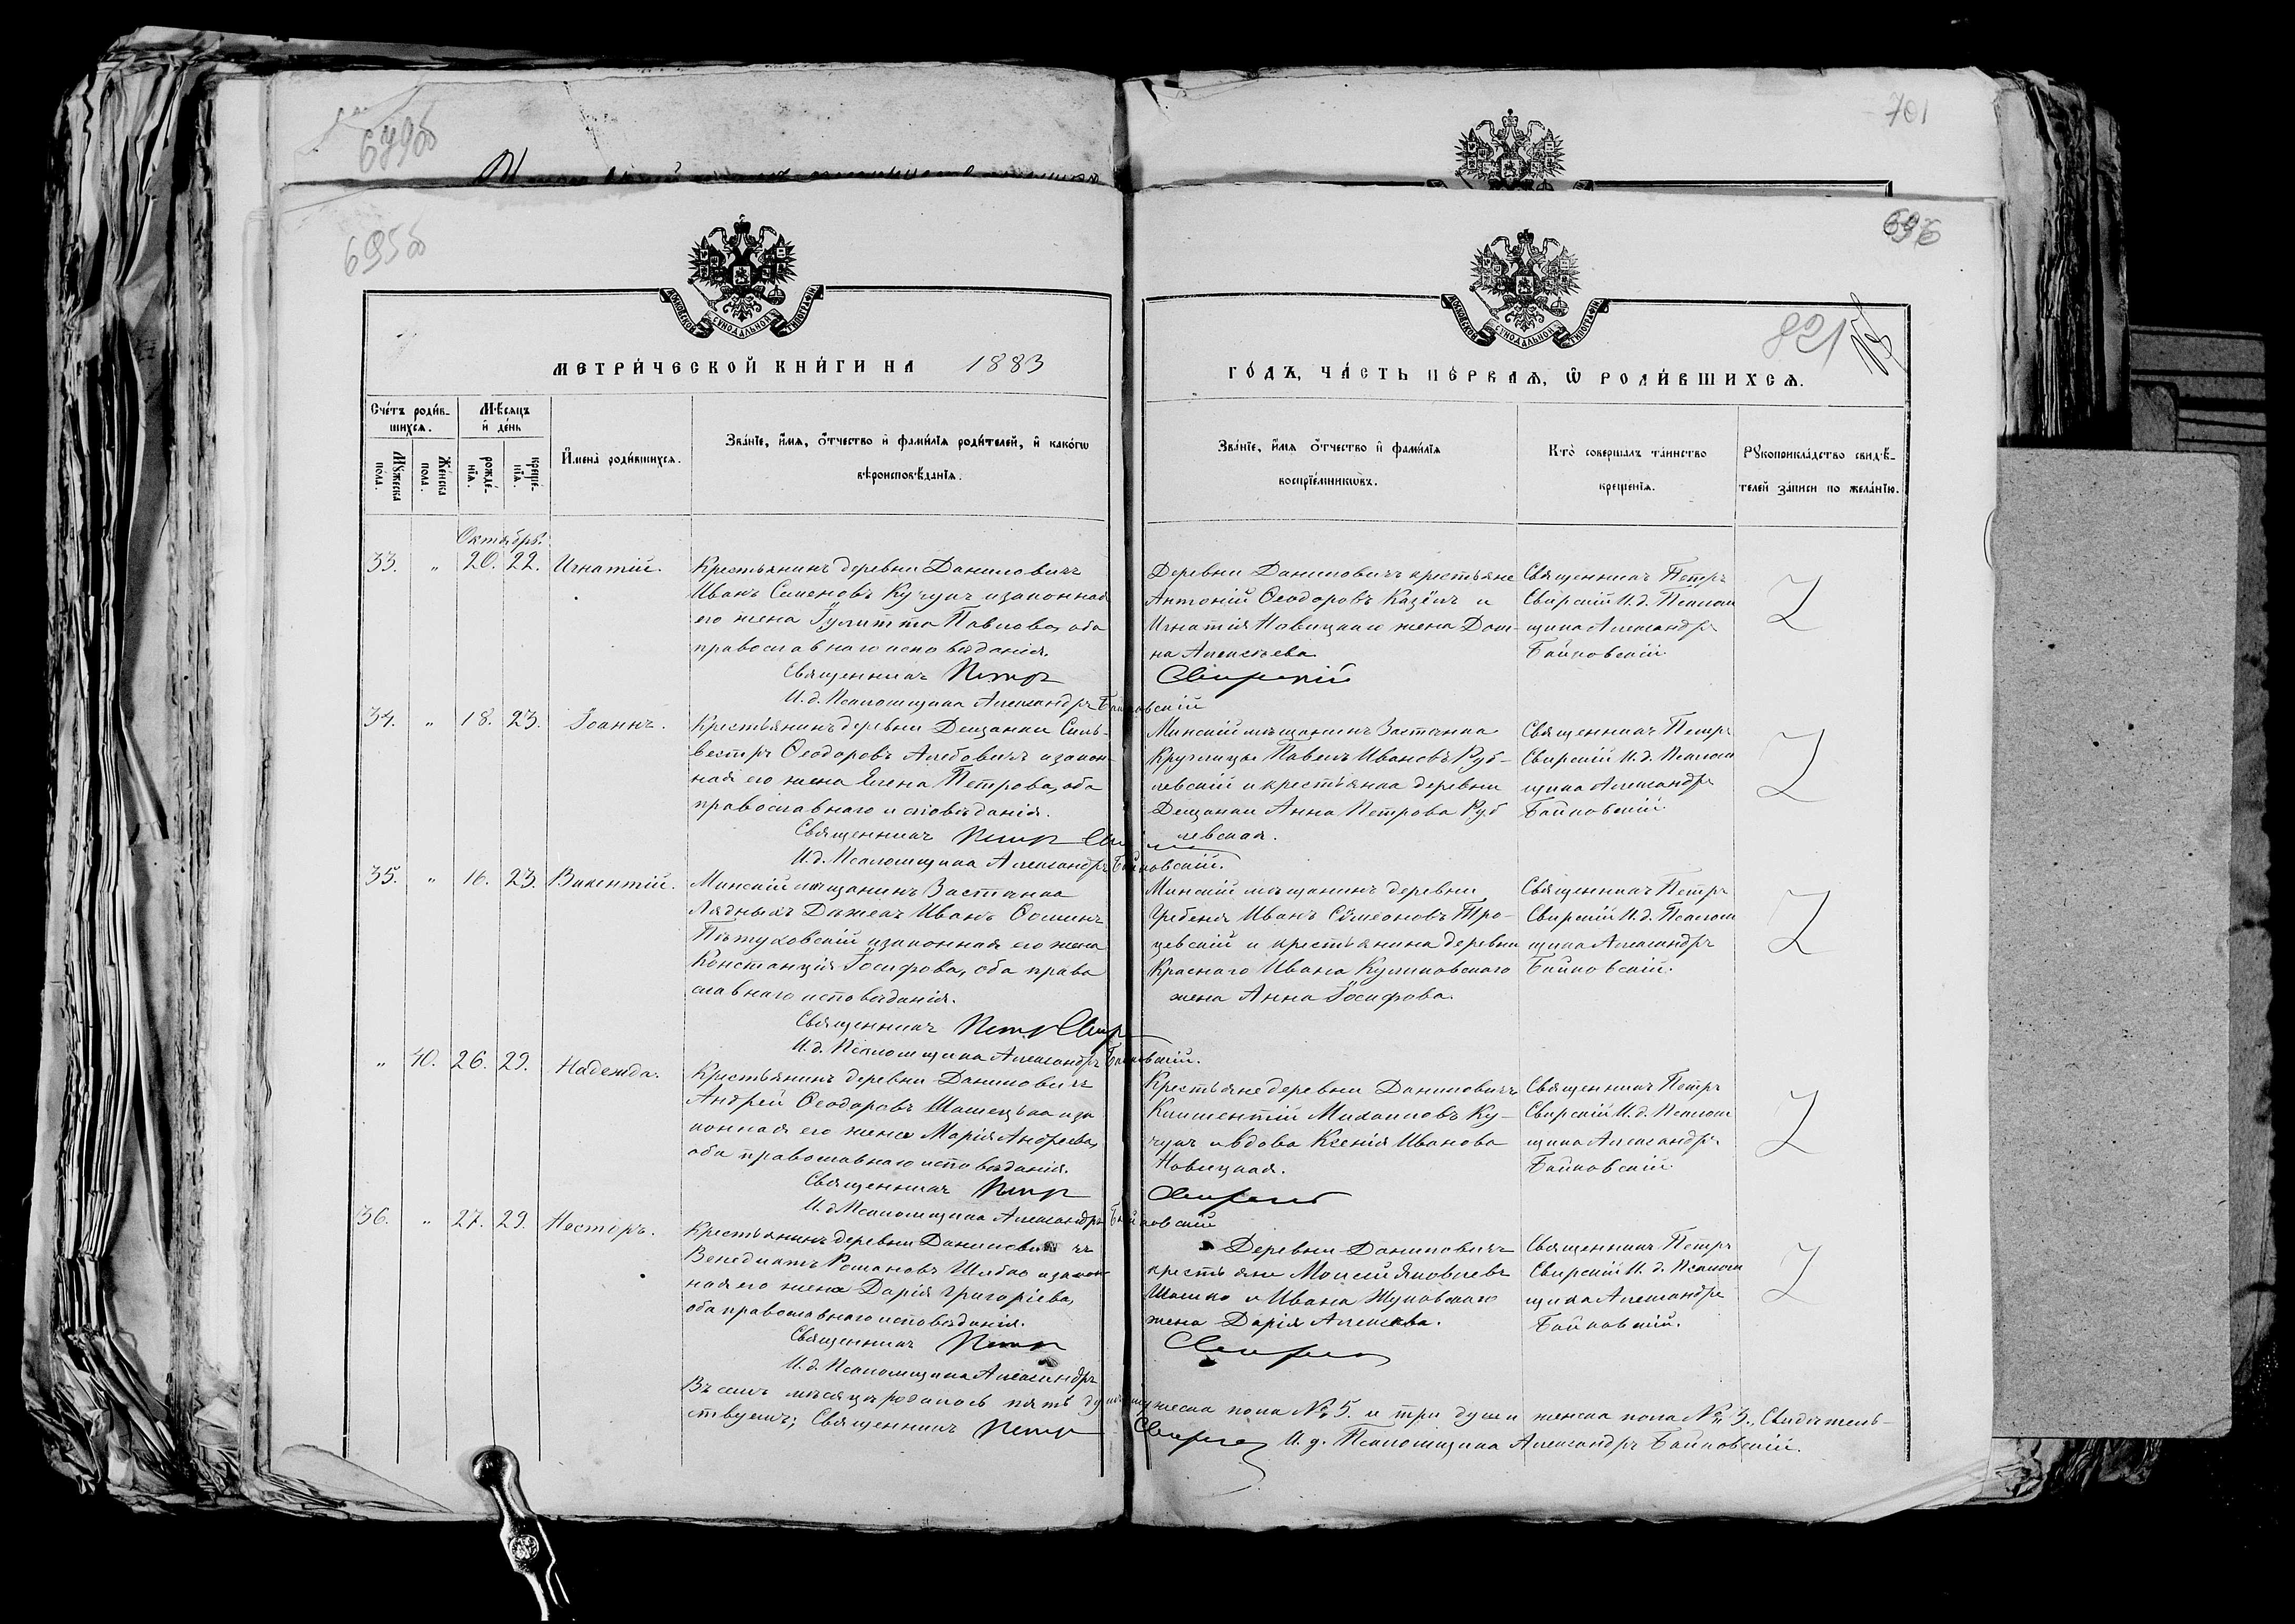 699об
701
695об
696
МОСКОВСКОЙ СѴНОДАЛЬНОЙ ТИПОГРАФІИ
МОСКОВСКОЙ СѴНОДАЛЬНОЙ ТИПОГРАФІИ
821
МЕТРИ́ЧЕСКОЙ КНИ́ГИ НА 1883
ГО́ДЪ, ЧА́СТЬ ПЕ́РВАЯ, Ѿ РОДИ́ВШИХСЯ.
Сче́тъ роди́в-
шихся.
Мѹ́жеска пола.
Же́нска пола.
Мѣ́сяцъ
и҆ де́нь
рожде́-
нїя.
креще́-
нїя.
И҆мена̀ роди́вшихся.
Зва́нїе, и҆́мя, ѻ҆́тчество и҆ фамѝлїя роди́телей, и҆ како́гѡ
вѣроисповѣ́данїя.
Зва́нїе, и҆́мя ѻ҆́тчество и҆ фамѝлїя
воспрїе́мникѡвъ.
Кто̀ соверша́лъ та́инство
креще́нїя.
Рѹкоприкла́дство свидѣ́-
телей за́писи по жела́нїю.
Октябрь.
33. " 20. 22. Игнатій.
Крестьянинъ деревни Даниловичъ
Иванъ Симеоновъ Кучунъ и законная
его жена Іулитта Павлова, оба
православнаго исповѣданія.
Священникъ Петръ Свирскій
И. д. Псаломщика Александръ Байковскій
Деревни Даниловичъ крестьяне
Антоній Ѳеодоровъ и
Игнатія Новицкаго жена Дом-
на Алексѣева
Священникъ Петръ
Свирскій И. д. Псалом
щика Александръ
Байковскій
34. " 18. 23. Іоаннъ.
Крестьянинъ деревни Дещанки Силь-
вестръ Ѳеодоровъ Алебовичъ и закон-
ная его жена Елена Петрова, оба
православнаго исповѣданія.
Священникъ Петръ
И. д. Псаломщика Александръ Байковскій.
Минскій мѣщанинъ Застѣнка
Круглицы Павелъ Ивановъ Руб-
левскій и крестьянка деревни
Дещанки Анна Петрова Руб
левская.
Священникъ Петръ
Свирскій И. д. Псалом
щика Александръ
Байковскій
35. " 16. 23. Викентій.
Минскій мѣщанинъ Застѣнка
Иванъ Ѳоминъ
Пѣтуховскій и законная его жена
Констанція Іосифова, оба право
славнаго исповѣданія.
Священникъ Петръ Свир
И. д. Псаломщика Александръ Байковскій.
Минскій мѣщанинъ деревни
Гребеня Иванъ Сѵмеоновъ Тро-
цевскій и крестьянина деревни
Краснаго Ивана Куликовскаго
жена Анна Іосифова.
Священникъ Петръ
Свирскій И. д. Псалом
щика Александръ
Байковскій.
" 40. 26. 29. Надежда.
Крестьянинъ деревни Даниловичъ
Андрей Ѳеодоровъ и за
конная его жена Марія Андреева,
оба православнаго исповѣданія.
Священникъ Петръ Свирскій
И. д. Псаломщика Александръ Байковскій
Крестьяне деревни Даниловичъ
Климентій Михаиловъ Ку-
чунъ и вдова Ксенія Иванова
Новицкая.
Священникъ Петръ
Свирскій И. д. Псалом
щика Александръ
Байковскій
36. " 27. 29. Несторъ.
Крестьянинъ деревни Даниловичъ
Венедиктъ Романовъ Шибко и закон
ная его жена Дарія Григоріева,
оба православнаго исповѣданія.
Священникъ Петръ Свирскій
И. д. Псаломщика Александръ
Деревни Даниловичъ
крестьяне Моисей Яковлевъ
Шашко и Ивана Жуковскаго
жена Дарія Алексѣева.
Священникъ Петръ
Свирскій И. д. Псалом
щика Александръ
Байковскій.
Въ семъ мѣсяцѣ родилось пять душъ мужеска пола № 5. и три души женска пола № 3., Свидѣтель-
ствуемъ; Священникъ Петръ Свирскій И. д. Псаломщика Александръ Байковскій.